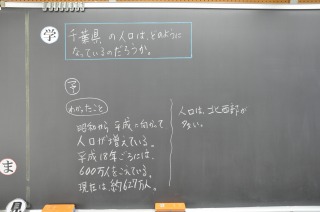 学
千葉県の人口は、どのように
なっているのだろうか。
予
わかったこと
昭和から平成に向かって
人口が増えている。
平成18年ごろには、
600万人をこえている。
現在は、約627万人。
人口は、北西部が
多い。
ま
見